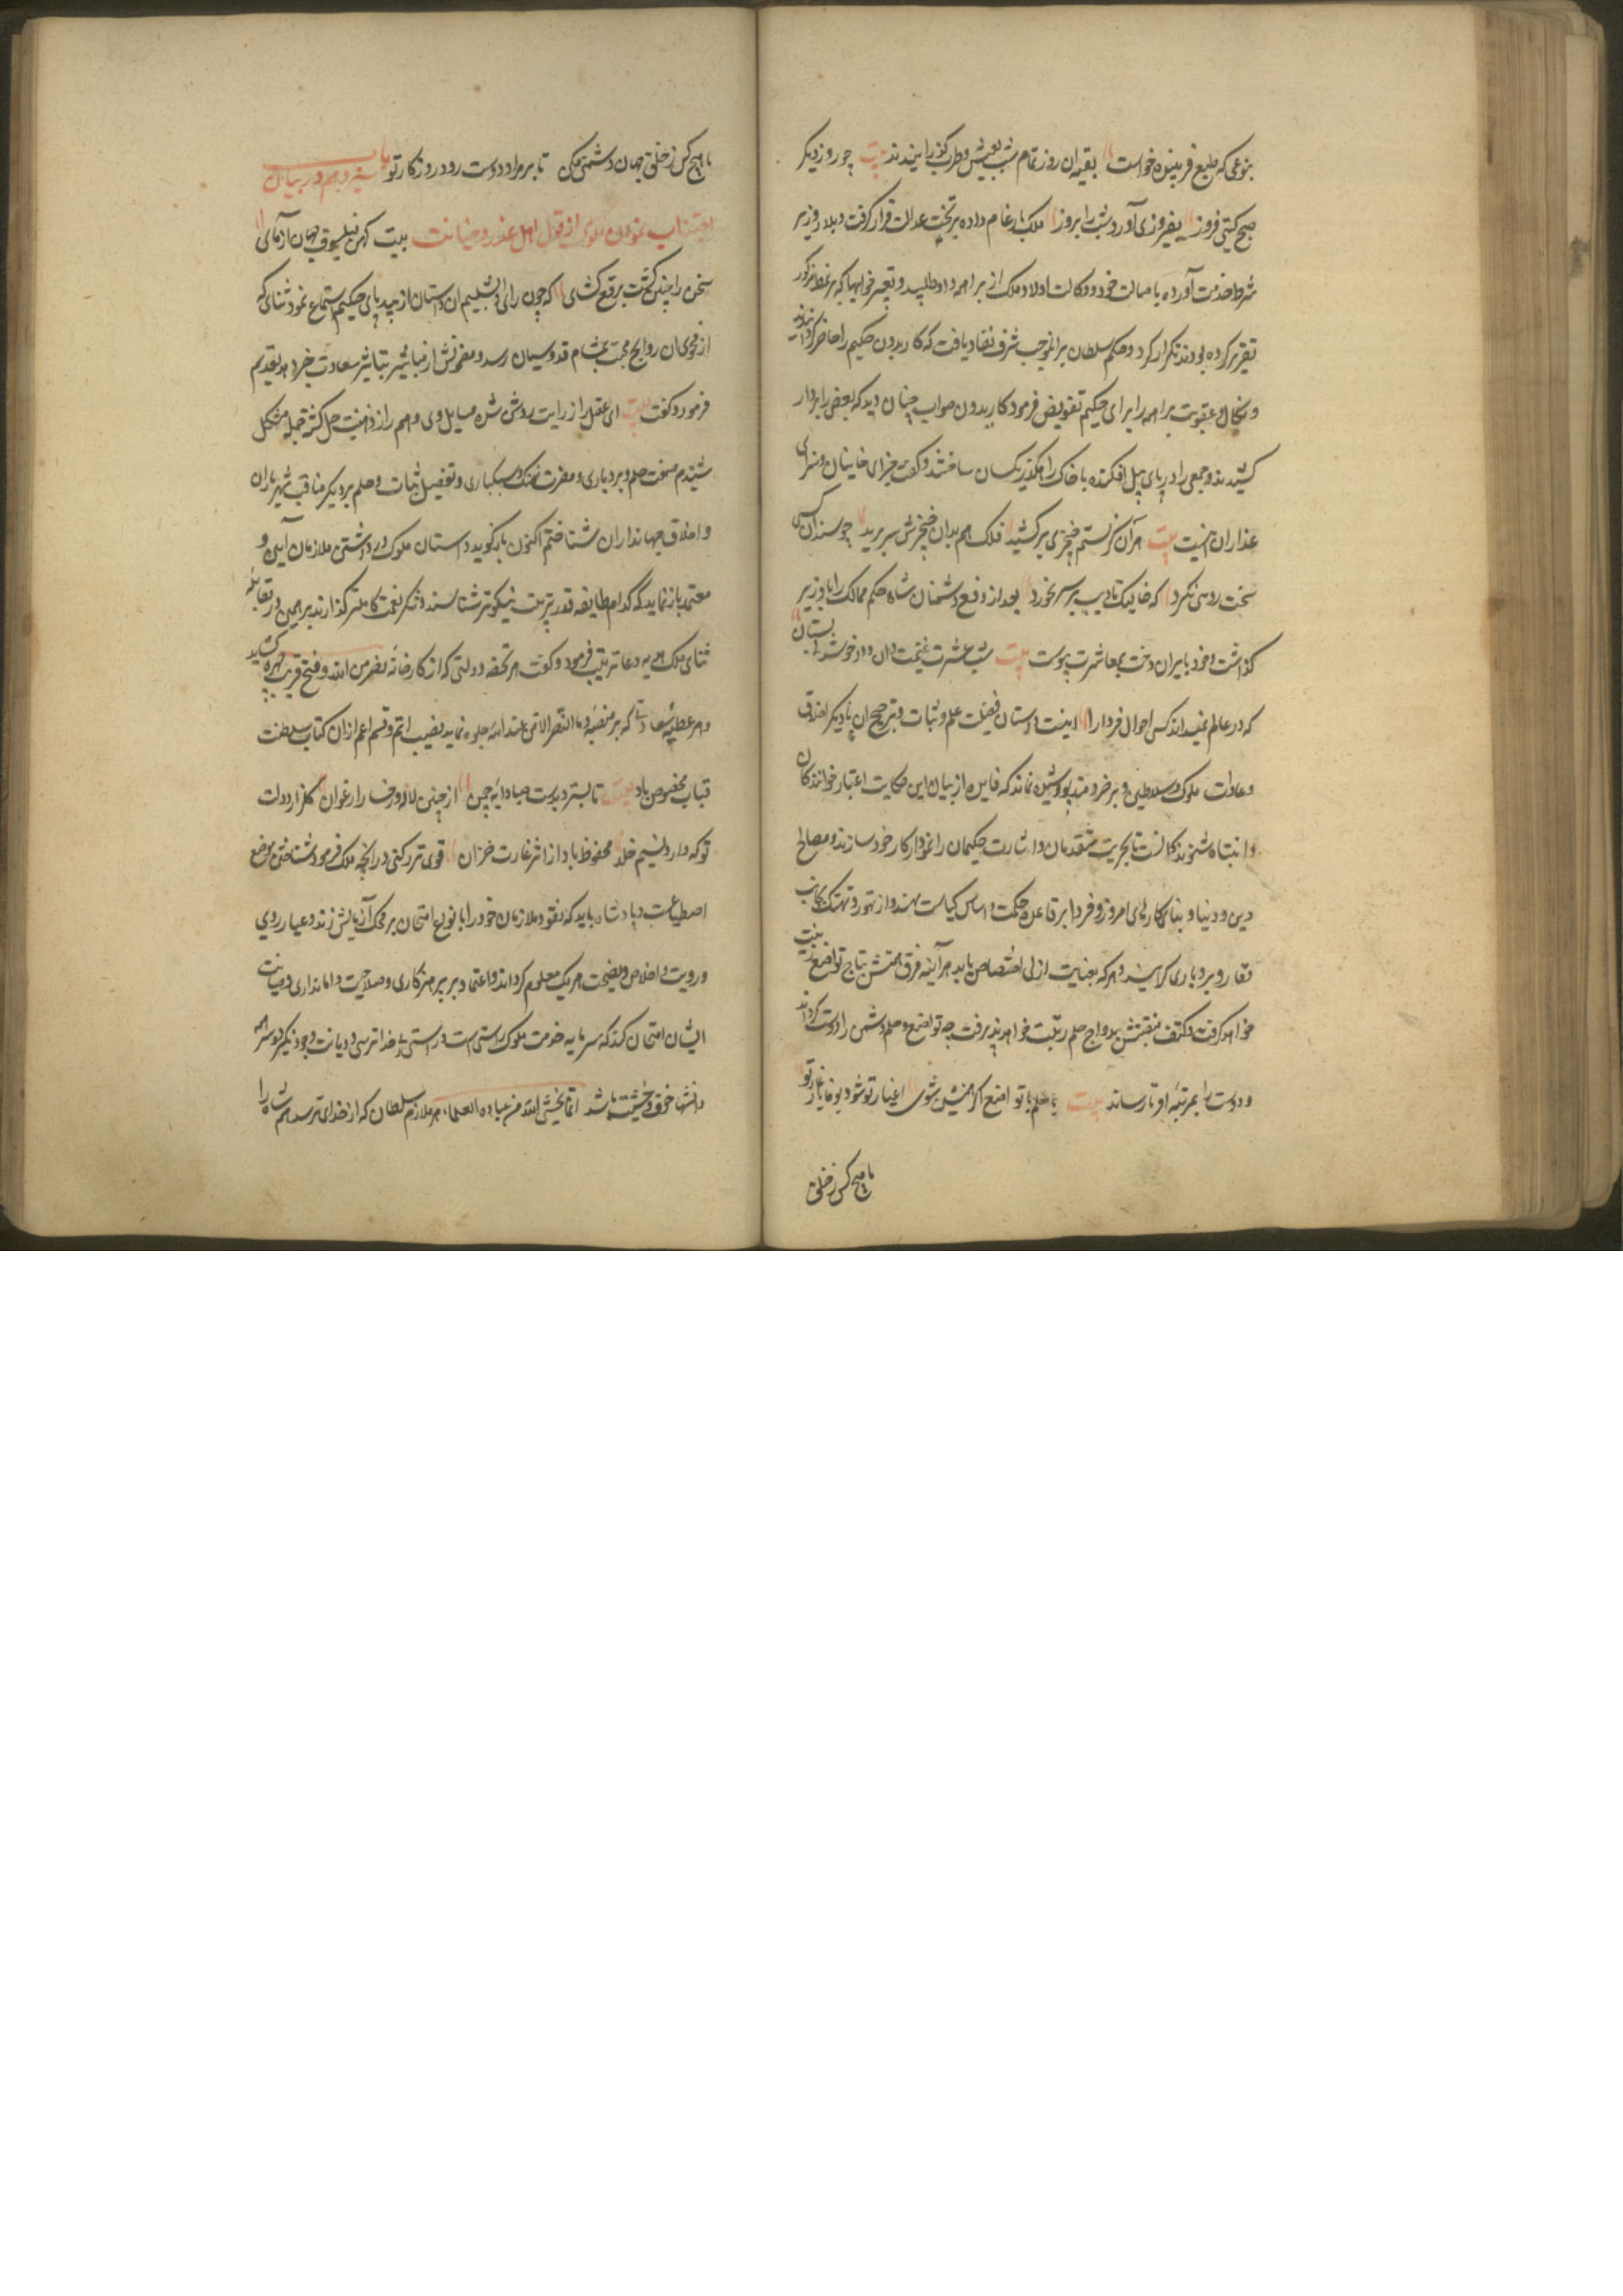 بنوعی که طبع فریبنده خواست بقیه آن روز تمام شب بعیش و طرب گذرانیدند بیت چو روز دیگر
صبح گیتی فروز بفیروزی آورد شب را بروز ملک بارعام داده بر تخت عدالت قرار گرفت و بلار وزیر
شرط خدمت آورده باصالت خود و وکالت اولاد ملک از براهمه داد طلبید و تعبیر خوابها که بر نمط مذکور
تقریر کرده بودند تکرار کرد و حکم سلطان برانموجب شرف نفاذ یافت که کاریدون حکیم را حاضر گردانیدند
و نکال و عقوبت براهمه را برای حکیم تفویض فرمود کاریدون صواب چنان دید که بعضی را بردار
کشیدند و جمعی را در پای پیل افکنده با خاک رهگذر یکسان ساختند و گفت جزای خاینان و سزای
غداران اینست بیت هر آن کز ستم خنجری برکشید فلک هم بدان خنجرش سر برید چو سندان کسی
سخت روئی نکرد که خایسک تادیب بر سر نخورد بعد از دفع دشمنان شاه حکم ممالک را با وزیر
گذاشت و خود با ایران دخت بمعاشرت پیوست بیت شب عشرت غنیمت دان و داد خوشدلی بستان
که در عالم نمیداند کسی احوال فردا را اینست داستان فضیلت حلم و ثبات و ترجیح آن بادیگر اخلاق
و عادات ملوک و سلاطین و بر خردمند پوشیده نماند که فایده از بیان این حکایت اعتبار خوانندگان
و انتباه شنوندگانست تا تجربت متقدمان و اشارت حکیمان را نمودار کار خود سازند و مصالح
دین و دنیا و بنای کارهای امروز و فردا بر قاعده حکمت و اساس کیاست نهند و از تهور و تهتک بجانب
وقار و بردباری گرایند و هر که بعنایت ازلی اختصاص یابد هر آینه فرق همتش بتاج تواضع زینت
خواهد گرفت و کتف منقبتش بدواج حلم رتبت خواهد پذیرفت چه تواضع و حلم دشمن را دوست گرداند
و دوست را بمرتبه اقربا رساند بیت با حلم با تواضع اگر همنشین شوی اغیار تو شود بوفا یار غار تو
با هیچ کس ز خلق
با هیچ کس ز خلق جهان دشمنی مکن تا بر مراد دوست رود روزگار تو باب سیزدهم در بیان
اجتناب نمودن ملوک از قول اهل غدر و خیانت بیت کهن فیلسوف جهان آزمای
سخن را چنین گشت برقع گشای که چون رای دابشلیم آن داستان از بیدپای حکیم استماع نمود ثنای که
از فحوی آن روایح محبت بمشام قدوسیان رسد و مضمونش از تباشیر سعادت خبر دهد بتقدیم
فرمود و گفت بیت ای عقل را ز رایت روشن شده مسایل وی وهم را ز ذهنت حل گشته جمله مشکل
شنیدم صفت حلم و بردباری و مضرت تهتک و سبکباری و تفضیل ثبات و حلم بر دیگر مناقب شهریاران
و اخلاق جهانداران شناختم اکنون بازگوید داستان ملوک در داشتن ملازمان امین و
معتمد باز نماید که کدام طایفه قدر تربیت نیکوتر شناسند و شکر نعمت کاملتر گذارند برهمن در مقابله
ثنای ملک هدیه دعا ترتیب فرمود و گفت هر تحفه دولتی که از کارخانه نصر من الله و فتح قریب چهره گشاید
و هر عطیه سعادتی که بر منصه و ما النصر الا من عند الله جلوه نماید نصیب اتم و قسم اعم از آن کتاب سلطنت
قباب مخصوص باد بیت تا بسترد بدست صبا دایه چمن از جبین لاله و رخسار ارغوان گلزار دولت
تو که دارد نسیم خلد محفوظ باد از اثر غارت خزان قوی تر رکنی در آنچه ملک فرمود شناختن موضع
اصطناعست و پادشاه باید که نقود ملازمان خود را بانواع امتحان بر محک آزمایش زند و عیار روی
و رویت و اخلاص و نصیحت هر یک معلوم گرداند و اعتماد بر پرهیزکاری و صلاحیت و امانداری و دیانت
ایشان امتحان کند که سرمایه خدمت ملوک راستی است و راستی بی خداترسی و دیانت وجود نگیرد و سر همه
دانشها خوف و خشیت باشد انما یخشی الله من عباده العلماء هر ملازم سلطان که از خدای ترسد هم شاه را